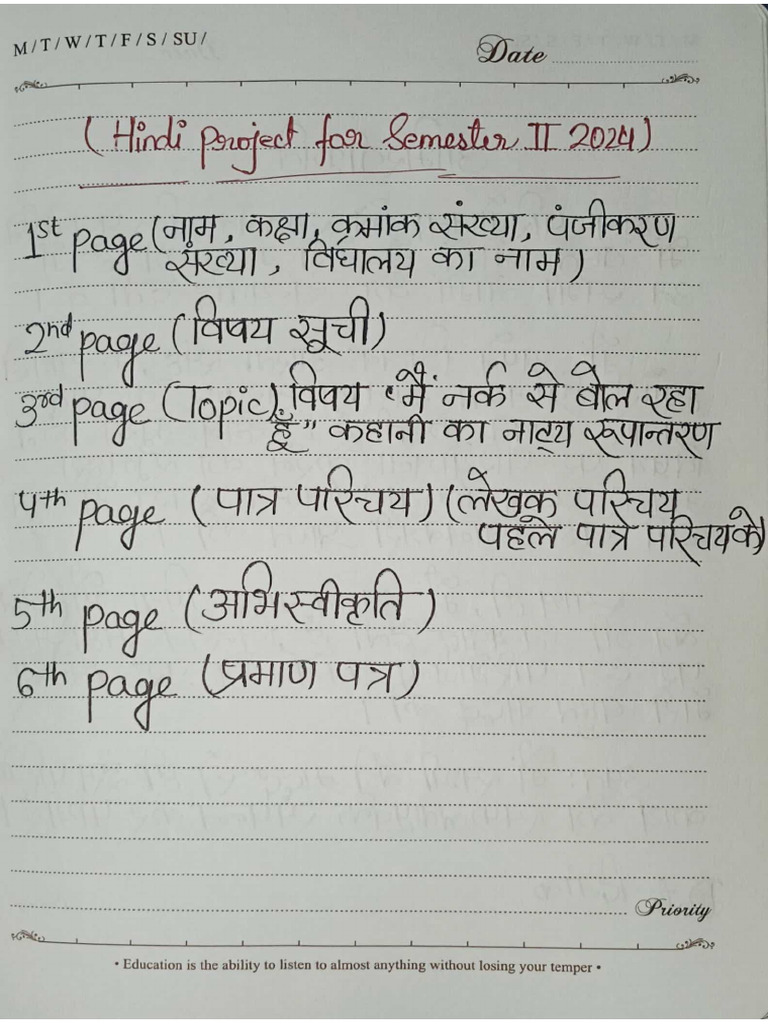 M / T / W / T / F / S / SU /
Date
( Hindi project for Semester II 2024)
1st page (नाम , कक्षा , क्रमांक संख्या, पंजीकरण
संख्या , विद्यालय का नाम )
2nd page (विषय सूची)
3rd page (Topic), विषय "मैं नर्क से बोल रहा
हूँ" कहानी का नाट्य रूपान्तरण
4th page ( पात्र परिचय) (लेखक परिचय
पहले पात्र परिचय के)
5th page (अभिस्वीकृति )
6th page (प्रमाण पत्र)
Priority
• Education is the ability to listen to almost anything without losing your temper •